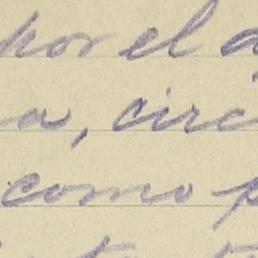 por el a
a, circ
como p